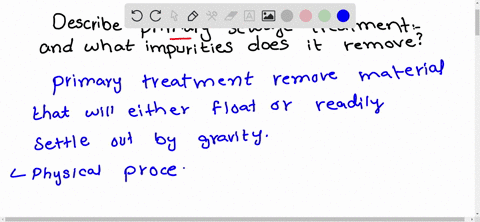 Describe primary sewage treatment:-
and what impurities does it remove?
primary treatment remove material
that will either float or readily
settle out by gravity.
Physical proce